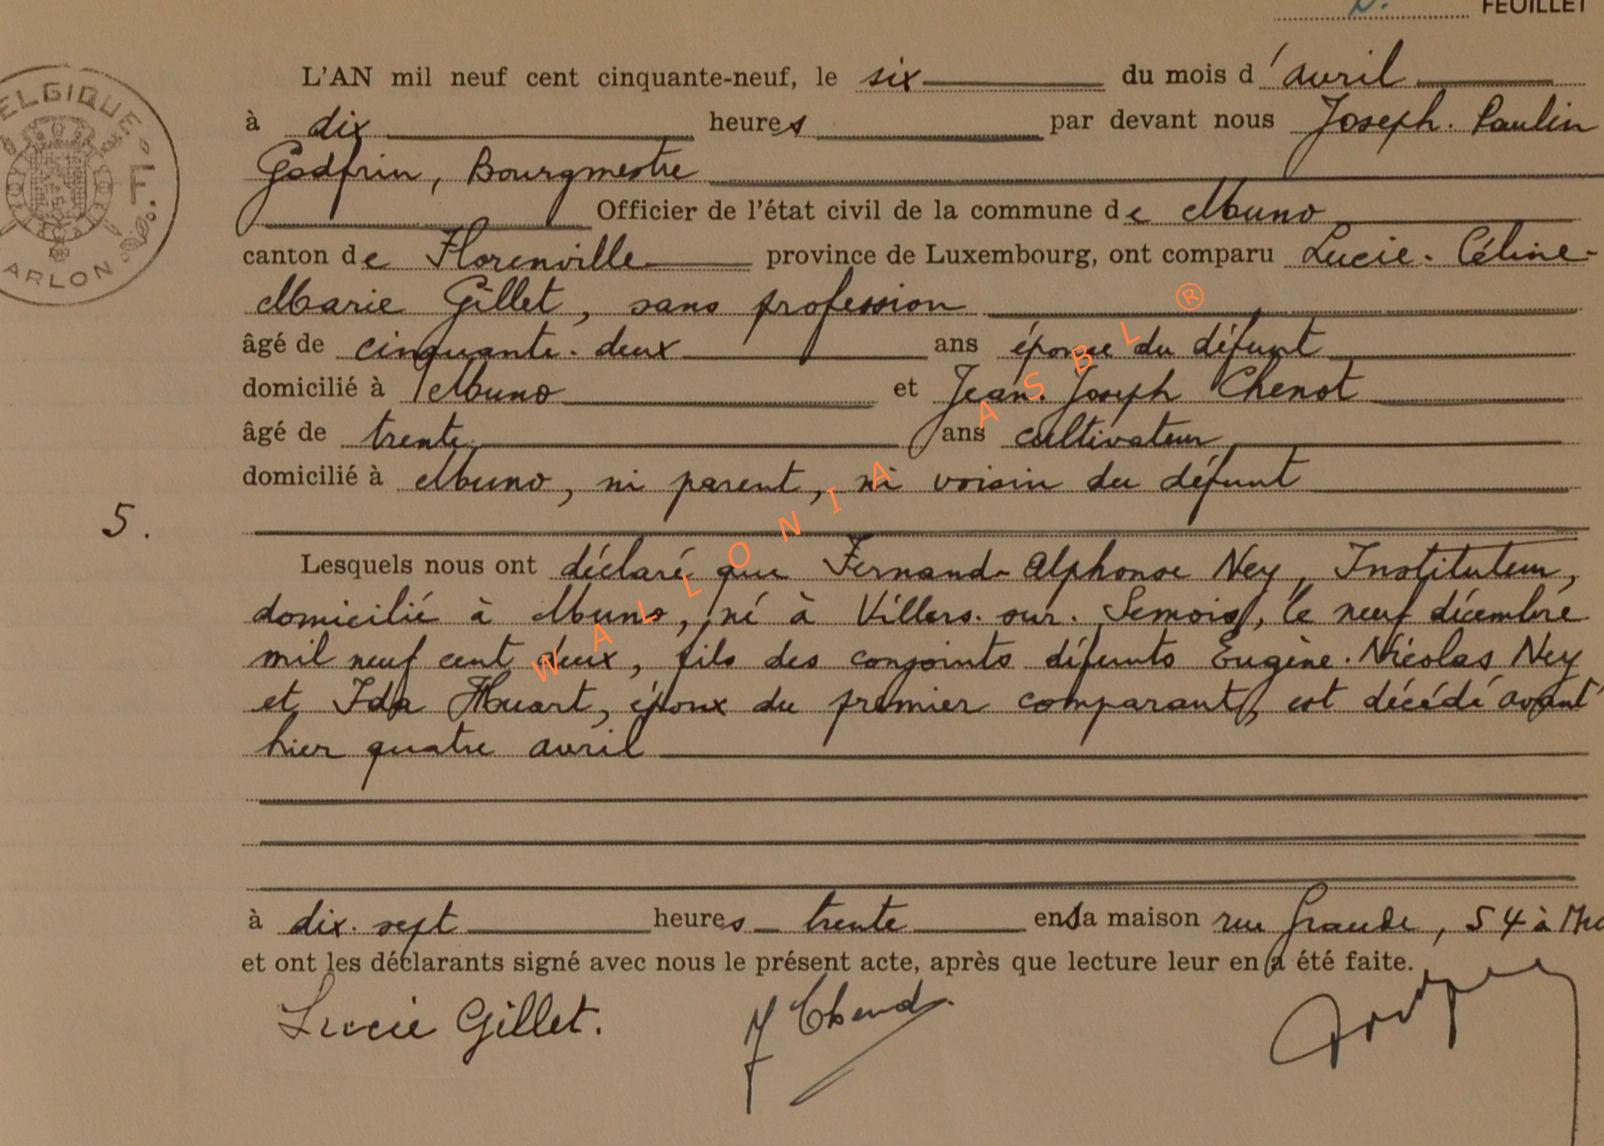 FEUILLET
L'AN mil neuf cent cinquante-neuf, le six du mois d'avril
à dix heures par devant nous Joseph-Paulin
Godfrin, Bourgmestre
Officier de l'état civil de la commune de Muno
canton de Florenville province de Luxembourg, ont comparu Lucie-Céline-
Marie Gillet, sans profession
âgé de cinquante-deux ans épouse du défunt
domicilié à Muno et Jean-Joseph Chenot
âgé de trente ans cultivateur
domicilié à Muno, ni parent, ni voisin du défunt
5.
Lesquels nous ont déclaré que Fernand-Alphonse Ney, Instituteur,
domicilié à Muno, né à Villers-sur-Semois, le neuf décembre
mil neuf cent deux, fils des conjoints défunts Eugène-Nicolas Ney
et Ida Huart, époux du premier comparant, est décédé avant
hier quatre avril
à dix-sept heures trente en sa maison rue Grande, 54 à Mu
et ont les déclarants signé avec nous le présent acte, après que lecture leur en a été faite.
Lucie Gillet.
J Chenot
BELGIQUE
ARLON
WALLONIA ASBL ®